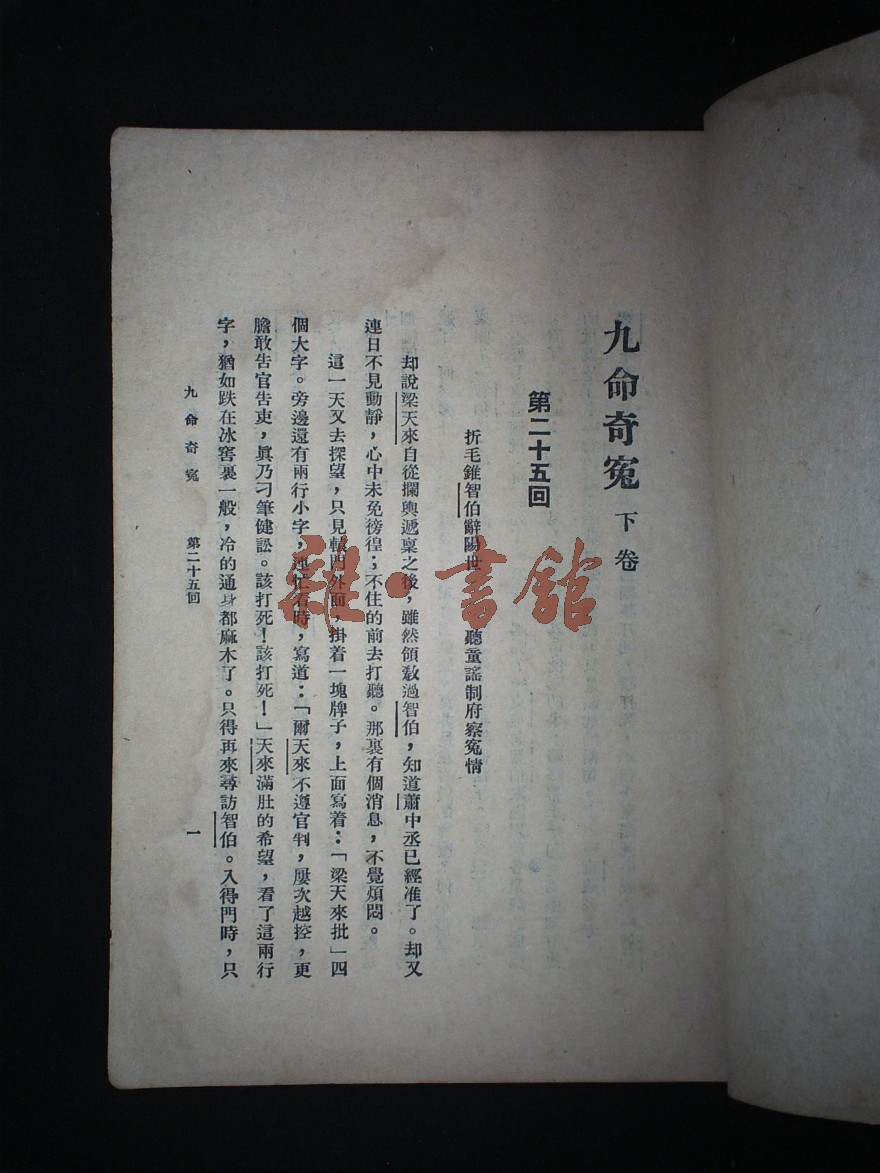 九命奇冤 下卷
第二十五回
折毛錐智伯辭陽世 聽童謠制府察冤情
却說梁天來自從攔輿遞稟之後，雖然領敎過智伯，知道蕭中丞已經准了。却又
連日不見動靜，心中未免徬徨；不住的前去打聽。那裏有個消息，不覺煩悶。
這一天又去探望，只見轅門外面，掛着一塊牌子，上面寫着：「梁天來批」四
個大字。旁邊還有兩行小字，連忙看時，寫道：「爾天來不遵官判，屢次越控，更
膽敢告官告吏，眞乃刁筆健訟。該打死！該打死！」天來滿肚的希望，看了這兩行
字，猶如跌在冰窖裏一般，冷的通身都麻木了。只得再來尋訪智伯。入得門時，只
九命奇冤 第二十五回 一
雜·書館